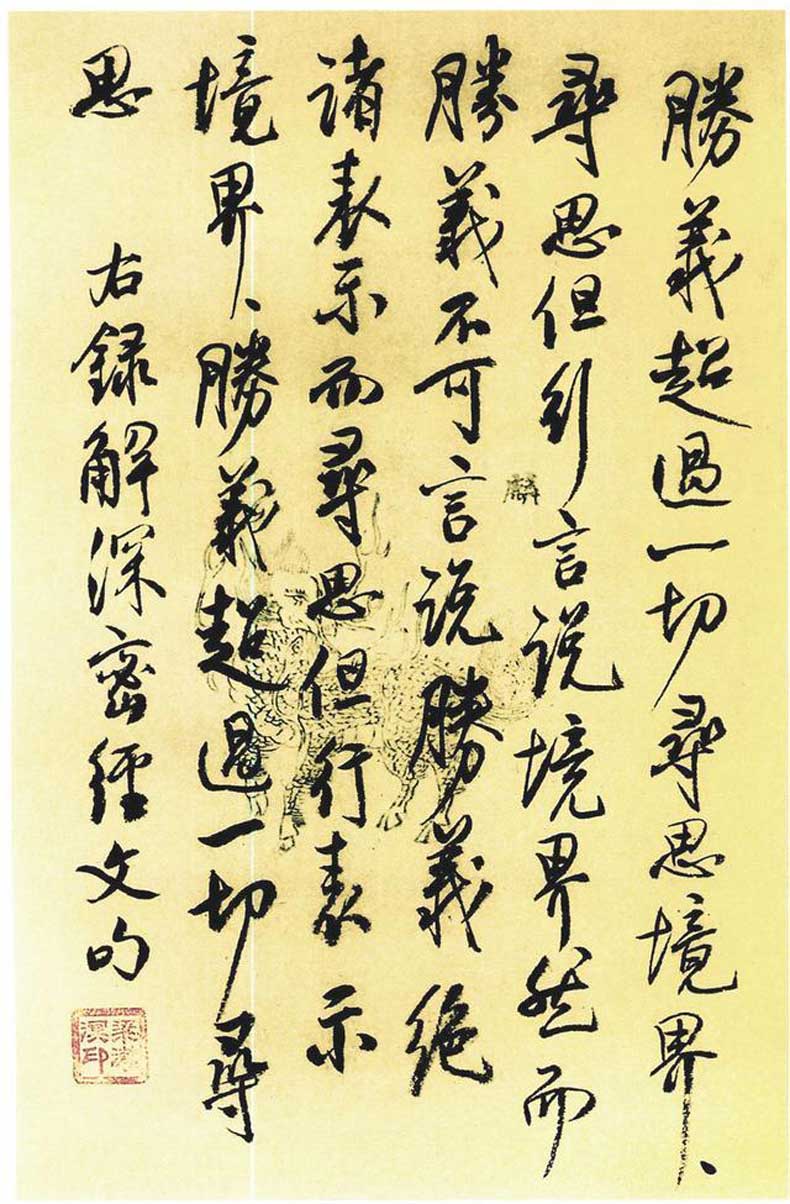 勝義超過一切尋思境界、
尋思但行言説境界然而
勝義不可言説勝義絕
諸表示而尋思但行表示
境界、勝義超過一切尋
思 右録解深密經文句
梁漱溟印
麟